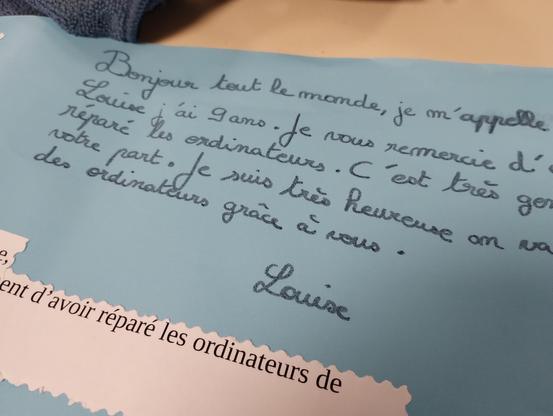 Bonjour tout le monde, je m'appelle
Louise j'ai 9 ans. Je vous remercie d'
réparé les ordinateurs. C'est très gen
votre part. Je suis très heureuse on va
des ordinateurs grâce à vous.
Louise
e,
ent d'avoir réparé les ordinateurs de